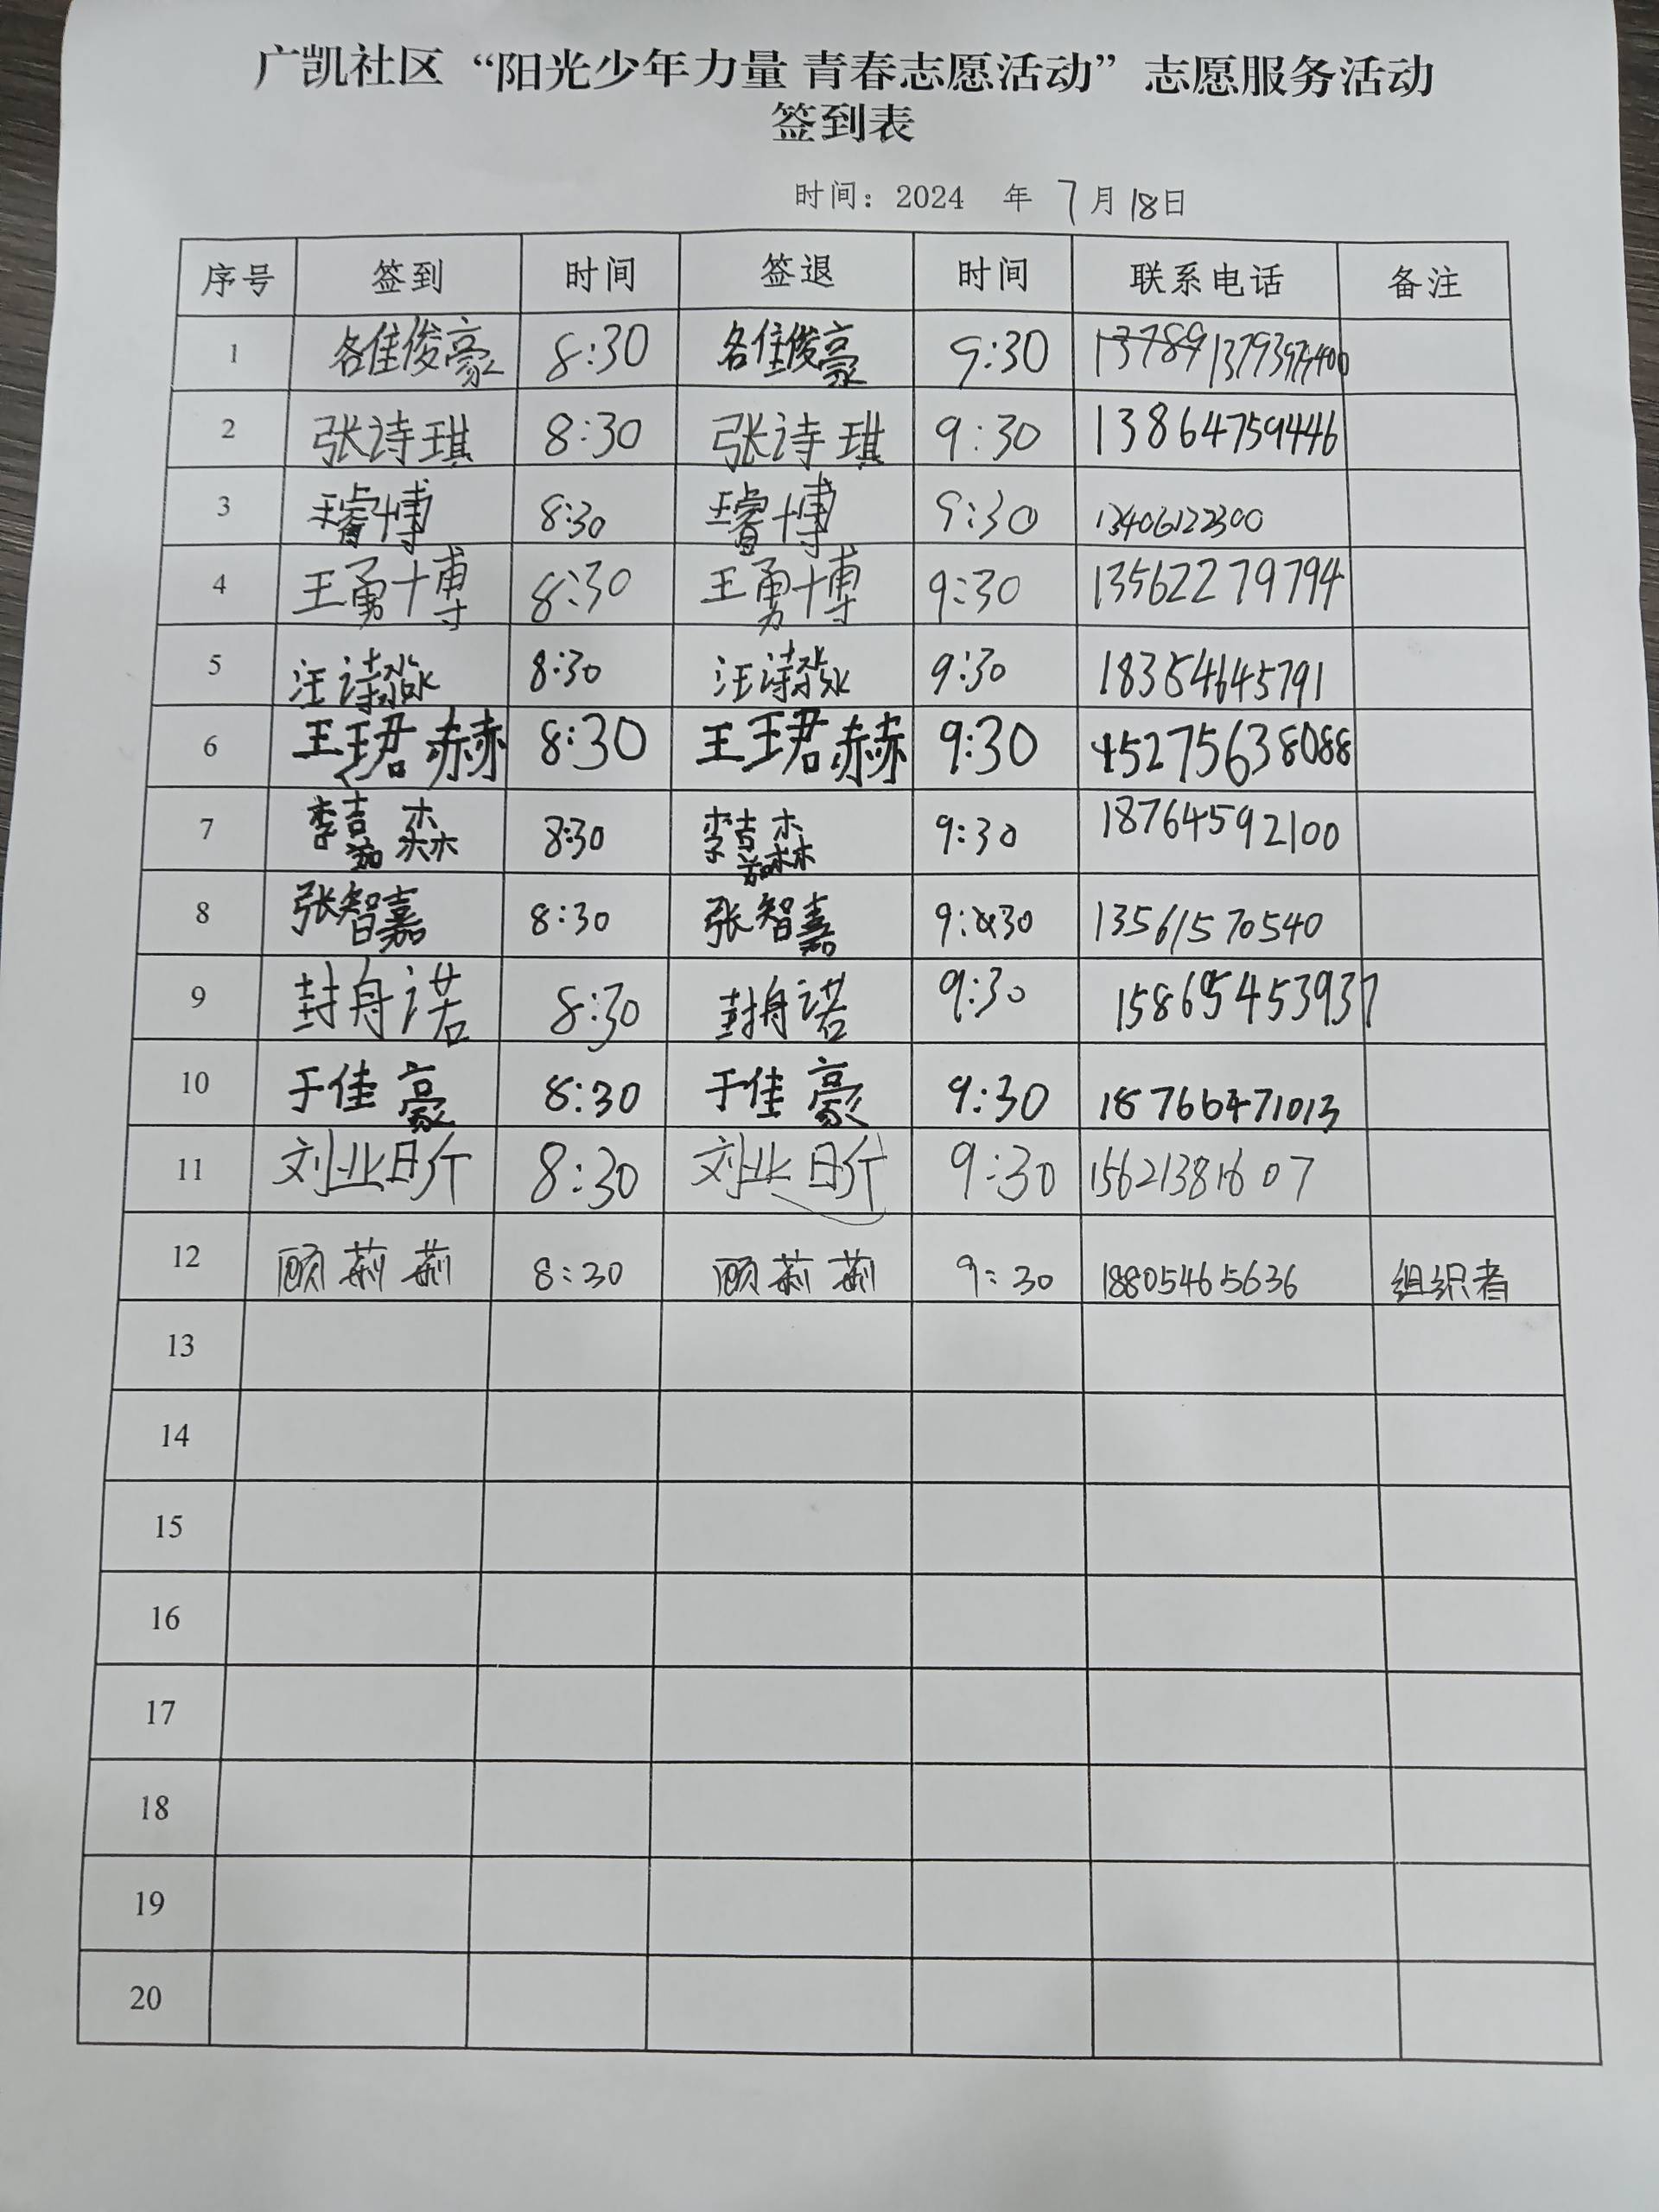 广凯社区“阳光少年力量 青春志愿活动”志愿服务活动
签到表
时间：2024 年 7月18日
序号 签到 时间 签退 时间 联系电话 备注
1 俊豪 8:30 俊豪 9:30
2 张诗琪 8:30 张诗琪 9:30 13864759446
3 王睿博 8:30 王睿博 9:30 13406122300
4 王勇博 8:30 王勇博 9:30 13562279794
5 汪诗 8:30 汪诗 9:30 18354645791
6 王珺赫 8:30 王珺赫 9:30 15275638088
7 李嘉森 8:30 李嘉森 9:30 18764592100
8 张智嘉 8:30 张智嘉 9:30 13561570540
9 封舟诺 8:30 封舟诺 9:30 15865453937
10 于佳豪 8:30 于佳豪 9:30 18766471013
11 刘业昕 8:30 刘业昕 9:30 15621381607
12 顾莉莉 8:30 顾莉莉 9:30 18805465636 组织者
13
14
15
16
17
18
19
20